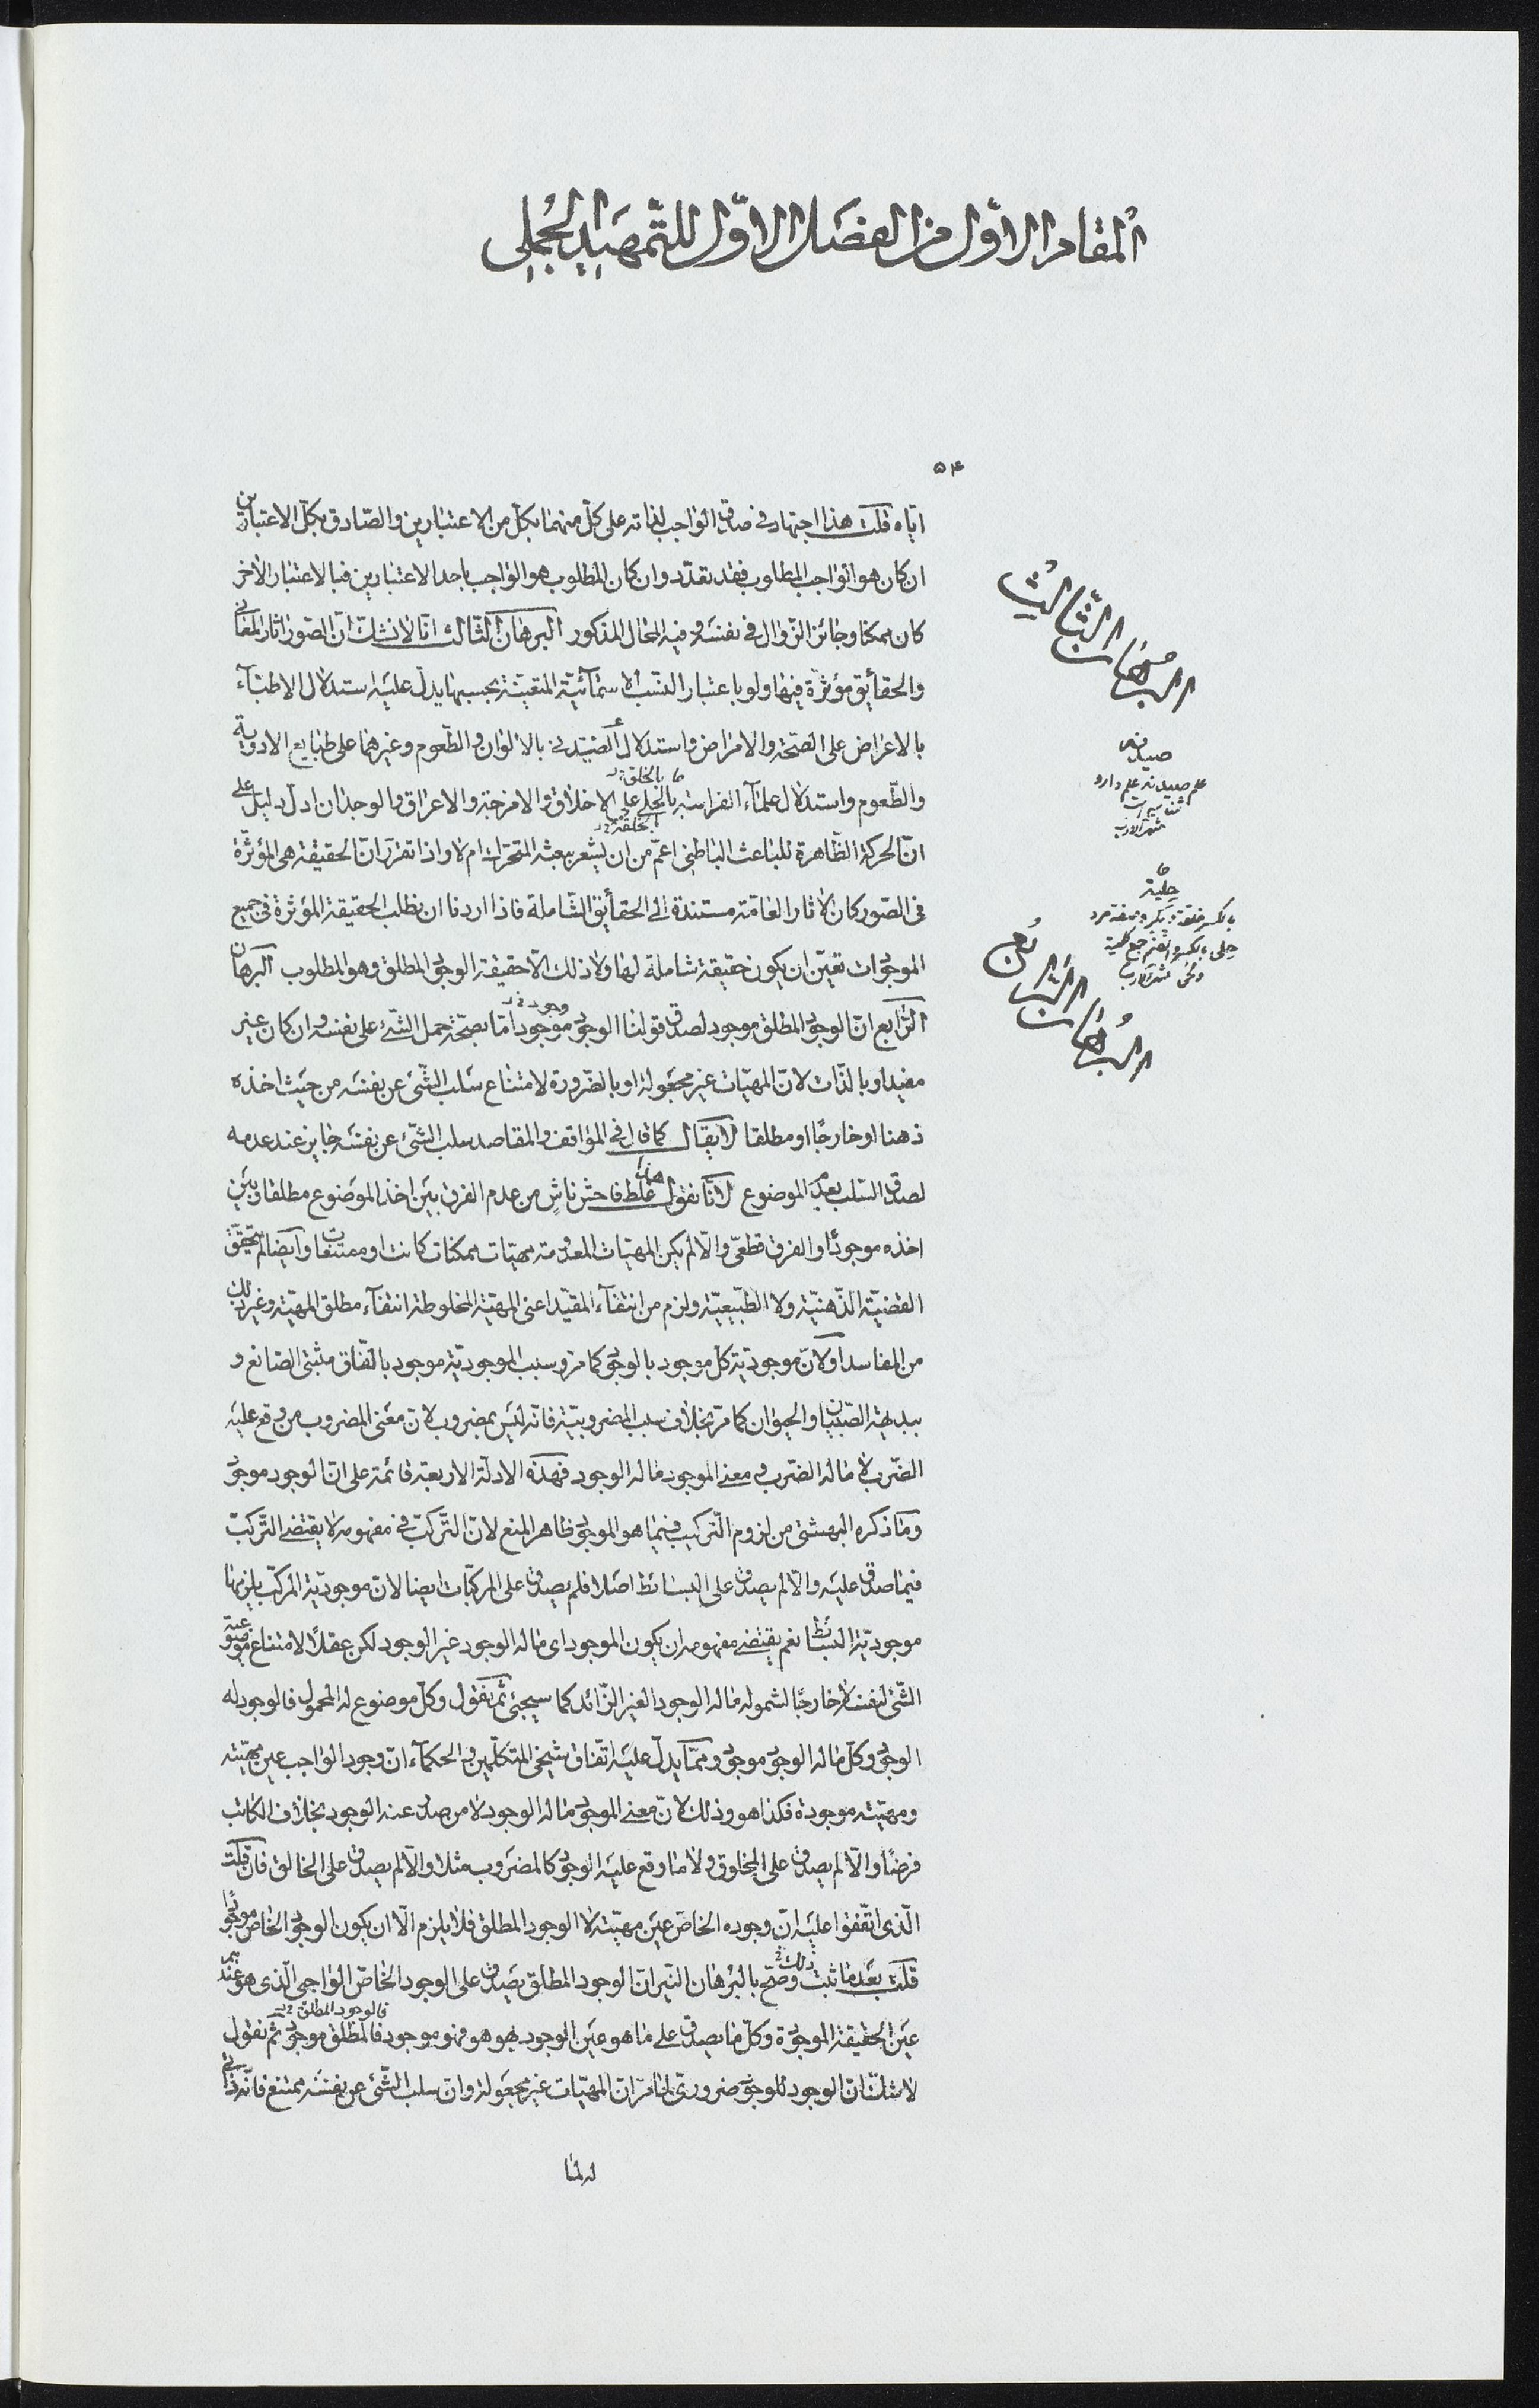 المقام الاوّل من الفصل الاوّل للتّمهيد الجُملي
۵۴
ايّاه قلت هذا اجتهاد فى صدق الواجب لذاته على كلّ منهما بكلّ من الاعتبارين والصّادق بكلّ الاعتبارين
ان كان هو الواجب المطلوب فقد تعدّد وان كان المطلوب هو الواجب باحد الاعتبارين فبالاعتبار الاخر
كان ممكنا وجائز الزّوال فى نفسه وفيه المحال المذكور البرهان الثّالث انّا لا نشكّ انّ الصّور اثار المعانى
والحقايق مؤثّرة فيها ولو باعتبار النسب الاسمآئيّة المتعيّنة بحسبها يدلّ عليه استدلال الاطبّآء
بالاعراض على الصّحّة والامراض واستدلال الصّيدنى بالالوان والطّعوم وغيرهما على طبايع الادوية
والطّعوم واستدلال علمآء الفراسة بالحلى على الاخلاق والامزجة والاعراق والوجدان ادلّ دليل على
انّ الحركة الظّاهرة للباعث الباطنى اعمّ من ان يشعر ببعثه المتحرّك ام لا واذا تقرّر انّ الحقيقة هى المؤثّرة
فى الصّور كان الاثار العامّة مستندة الى الحقايق الشّاملة فاذا اردنا ان نطلب الحقيقة المؤثرة فى جميع
الموجودات تعيّن ان يكون حقيقة شاملة لها ولا ذلك الّا حقيقة الوجود المطلق وهو المطلوب البرهان
الرّابع انّ الوجود المطلق موجود لصدق قولنا الوجود موجود امّا بصحّة حمل الشّىء على نفسه وان كان غير
مفيد او بالذّات لانّ المهيّات غير مجعولة او بالضّرورة لامتناع سلب الشّىء عن نفسه من حيث اخذه
ذهنا او خارجًا او مطلقا لا يقال كما قال فى المواقف والمقاصد سلب الشّىء عن نفسه جايز عند عدمه
لصدق السّلب بعدم الموضوع لانّا نقول هذا غلط فاحش ناشٍ من عدم الفرق بين اخذ الموضوع مطلقا وبين
اخذه موجودًا والفرق قطعىّ والّا لم يكن المهيّات المعدومة مهيّات ممكنات كانت او ممتنعات وايضا لم يتحقّق
القضيّة الذّهنيّة ولا الطّبيعيّة ولزم من انتفآء المقيّد اعنى المهيّة المخلوطة انتفآء مطلق المهيّة وغير ذلك
من المفاسد او لانّ موجوديّة كلّ موجود بالوجود كما مرّ وسبب الموجوديّة موجود باتّفاق مثبتى الصّانع و
ببديهة الصّبيان والحيوان كما مرّ بخلاف سبب المضروبيّة فانّه ليس بمضروب لانّ معنى المضروب من وقع عليه
الضّرب لا ما له الضّرب ومعنى الموجود ما له الوجود فهذه الادلّة الاربعة قائمة على انّ الوجود موجود
وما ذكره البهشتى من لزوم التّركيب فيما هو الموجود ظاهر المنع لانّ التّركّب فى مفهومه لا يقتضى التّركّب
فيما صدق عليه والّا لم يصدق على البسائط اصلا فلم يصدق على المركّبات ايضا لانّ موجوديّة المركّب يلزمها
موجوديّة البسائط نعم يقتضى مفهومه ان يكون الموجود اى ما له الوجود غير الوجود لكن عقلًا لامتناع موضوعيّة
الشّىء لنفسه لا خارجًا لشموله ما له الوجود الغير الزّائد كما سيجئ ثم نقول وكلّ موضوع له المحمول فالوجود له
الوجود وكلّ ما له الوجود موجود وممّا يدلّ عليه اتّفاق شيخى المتكلّمين والحكمآء انّ وجود الواجب عين مهيّته
ومهيّته موجودة فكذا هو وذلك لانّ معنى الموجود ما له الوجود لا من صدر عنه الوجود بخلاف الكاتب
فرضًا والّا لم يصدق على المخلوق ولا ما وقع عليه الوجود كالمضروب مثلا والّا لم يصدق على الخالق فان قلت
الّذى اتّفقوا عليه انّ وجوده الخاصّ عين مهيّته لا الوجود المطلق فلا يلزم الّا ان يكون الوجود الخاصّ موجودًا
قلت بعد ما ثبت ذلك وصحّ بالبرهان النيّر انّ الوجود المطلق يصدق على الوجود الخاصّ الواجبى الّذى هو عندهم
عين الحقيقة الموجودة وكلّ ما يصدق على ما هو عين الوجود بهو هو فهو موجود فالمطلق موجود ثم نقول
لا شكّ انّ الوجود للوجود ضرورىّ لما مرّ انّ المهيّات غير مجعولة وانّ سلب الشّىء عن نفسه ممتنع فانّه ذاتى
له لما
بالخلق
بالخلقة
وجود
فالوجود المطلق
البُرهان الثّالث
صيدنه
علم صيدنه علم دارو
شناسى است
منتهى الارب
حلية
بالكسر خلقت و پيكر و صفت مرد
حلى بالكسر والضم جمع حلية
منتهى الارب
البُرهان الرّابع